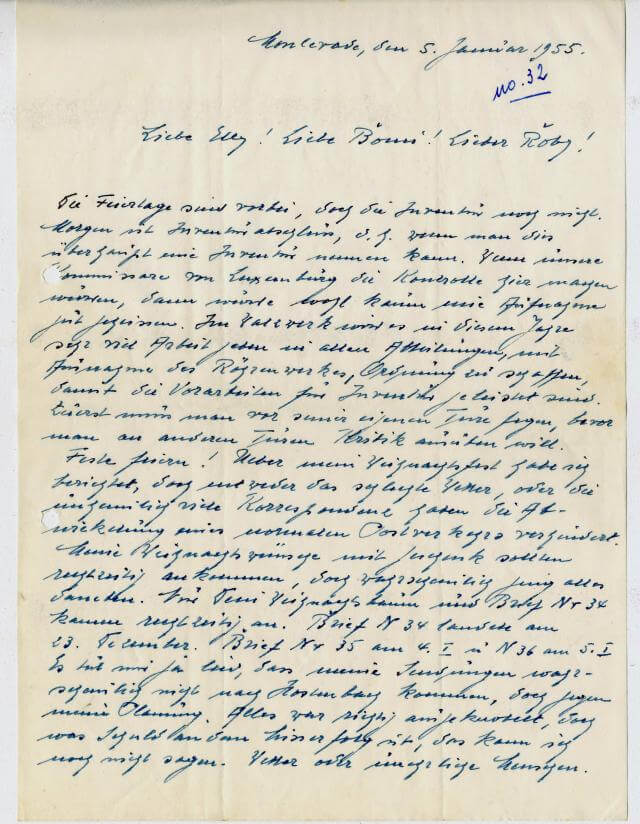 Monlevade, den 5. Januar 1955.
no. 32
Liebe Elly! Liebe Bömi! Lieber Röby!
Die Feiertage sind vorbei, doch die Inventur noch nicht.
Morgen ist Inventurabschluss, d. h. wenn man dies
überhaupt eine Inventur nennen kann. Wenn unsere
Kommissare von Luxemburg die Kontrolle hier machen
würden, dann würde wohl kaum eine Aufnahme
gut geheissen. Im Walzwerk wird es in diesem Jahre
sehr viel Arbeit geben in allen Abteilungen, mit
Ausnahme des Röhrenwerkes, Ordnung zu schaffen,
damit die Vorarbeiten für Inventur geleistet sind.
Zuerst muss man vor seiner eigenen Türe fegen, bevor
man an anderen Türen Kritik ausüben will.
Feste feiern! Ueber mein Weihnachtsfest habe ich
berichtet, doch entweder das schlechte Wetter, oder die
unheimlich viele Korrespondenz haben die Ab-
wickelung eines normalen Postverkehrs verhindert.
Meine Weihnachtswünsche mit Geschenk sollten
rechtzeitig ankommen, doch wahrscheinlich ging alles
daneben. Nur Weihnachtsbaum und Brief Nr 34
kamen rechtzeitig an. Brief N 34 landete am
23. Dezember. Brief Nr 35 am 4. I u N 36 am 5. I
Es tut mir ja leid, dass meine Sendungen wahr-
scheinlich nicht nach Hostenbach kommen, doch gegen
meine Planung. Alles war richtig ausgeknobelt, doch
was Schuld an dem Misserfolg ist, das kann ich
noch nicht sagen. Wetter oder unehrliche Menschen.